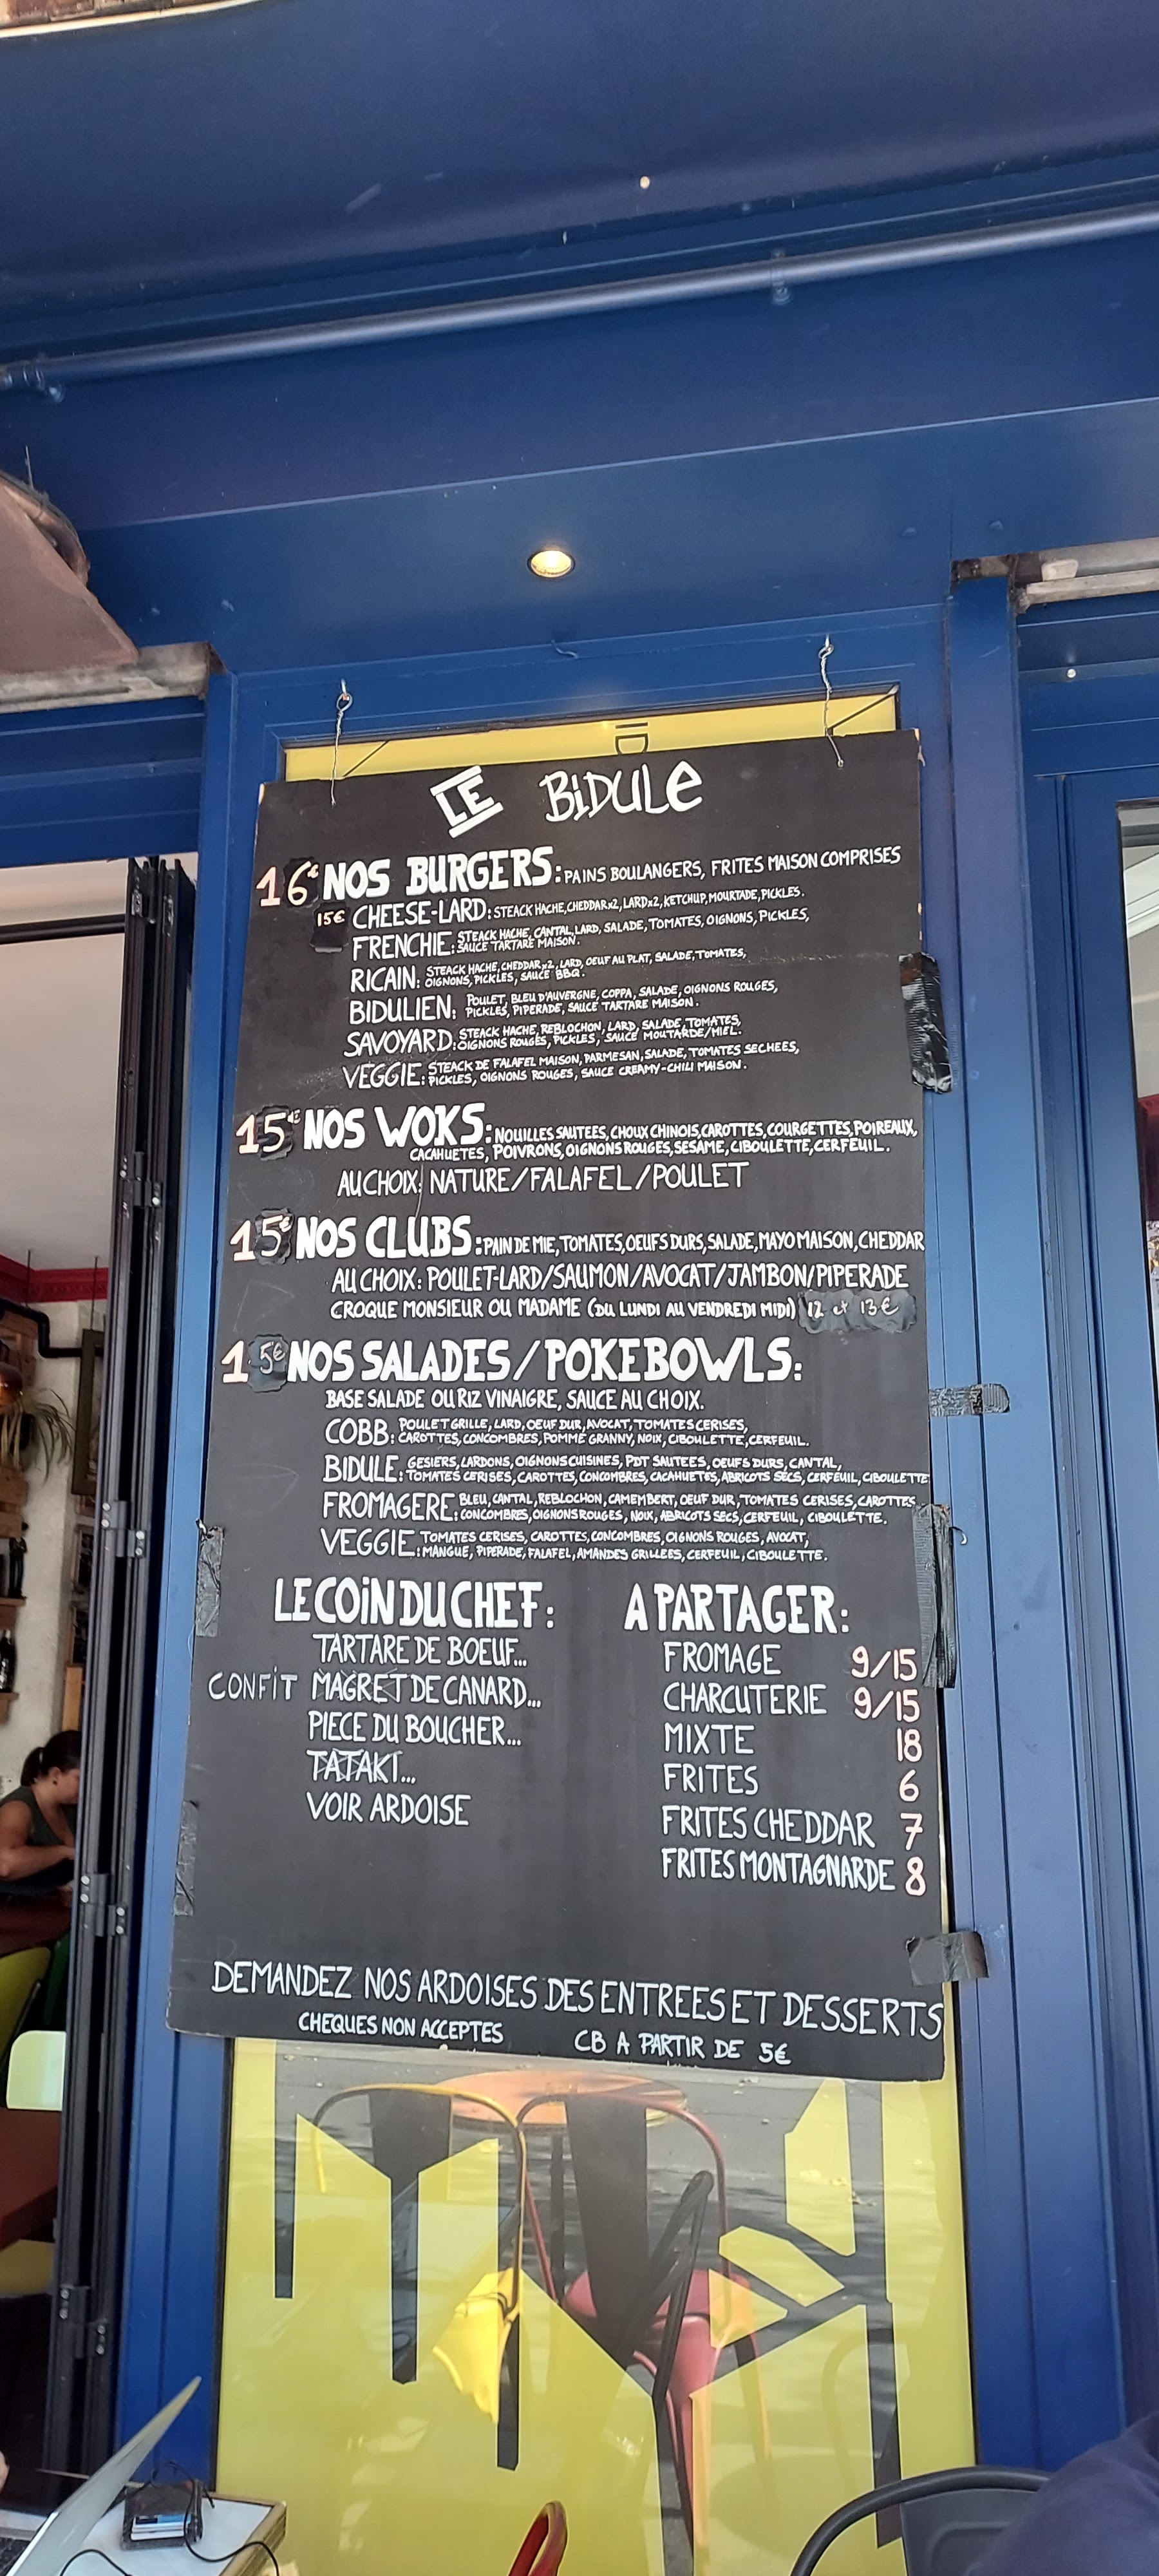 ID
LE BiDULe
16€ NOS BURGERS: PAINS BOULANGERS, FRITES MAISON COMPRISES
15€ CHEESE-LARD: STEACK HACHE, CHEDDARx2, LARDx2, KETCHUP, MOURTADE, PICKLES.
FRENCHIE: STEACK HACHE, CANTAL, LARD, SALADE, TOMATES, OIGNONS, PICKLES,
SAUCE TARTARE MAISON.
RICAIN: STEACK HACHE, CHEDDARx2, LARD, OEUF AU PLAT, SALADE, TOMATES,
OIGNONS, PICKLES, SAUCE BBQ.
BIDULIEN: POULET, BLEU D'AUVERGNE, COPPA, SALADE, OIGNONS ROUGES,
PICKLES, PIPERADE, SAUCE TARTARE MAISON.
SAVOYARD: STEACK HACHE, REBLOCHON, LARD, SALADE, TOMATES,
OIGNONS ROUGES, PICKLES, SAUCE MOUTARDE/MIEL.
VEGGIE: STEACK DE FALAFEL MAISON, PARMESAN, SALADE, TOMATES SECHEES,
PICKLES, OIGNONS ROUGES, SAUCE CREAMY-CHILI MAISON.
15€ NOS WOKS: NOUILLES SAUTEES, CHOUX CHINOIS, CAROTTES, COURGETTES, POIREAUX,
CACAHUETES, POIVRONS, OIGNONS ROUGES, SESAME, CIBOULETTE, CERFEUIL.
AU CHOIX: NATURE/FALAFEL/POULET
15€ NOS CLUBS: PAIN DE MIE, TOMATES, OEUFS DURS, SALADE, MAYO MAISON, CHEDDAR
AU CHOIX: POULET-LARD/SAUMON/AVOCAT/JAMBON/PIPERADE
CROQUE MONSIEUR OU MADAME (DU LUNDI AU VENDREDI MIDI) 12 et 13€
15€ NOS SALADES/POKEBOWLS:
BASE SALADE OU RIZ VINAIGRE, SAUCE AU CHOIX.
COBB: POULET GRILLE, LARD, OEUF DUR, AVOCAT, TOMATES CERISES,
CAROTTES, CONCOMBRES, POMME GRANNY, NOIX, CIBOULETTE, CERFEUIL.
BIDULE: GESIERS, LARDONS, OIGNONS CUISINES, PDT SAUTEES, OEUFS DURS, CANTAL,
TOMATES CERISES, CAROTTES, CONCOMBRES, CACAHUETES, ABRICOTS SECS, CERFEUIL, CIBOULETTE
FROMAGERE: BLEU, CANTAL, REBLOCHON, CAMEMBERT, OEUF DUR, TOMATES CERISES, CAROTTES,
CONCOMBRES, OIGNONS ROUGES, NOIX, ABRICOTS SECS, CERFEUIL, CIBOULETTE.
VEGGIE: TOMATES CERISES, CAROTTES, CONCOMBRES, OIGNONS ROUGES, AVOCAT,
MANGUE, PIPERADE, FALAFEL, AMANDES GRILLEES, CERFEUIL, CIBOULETTE.
LE COIN DU CHEF:
TARTARE DE BOEUF...
CONFiT MAGRET DE CANARD...
PIECE DU BOUCHER...
TATAKI...
VOIR ARDOISE
A PARTAGER:
FROMAGE 9/15
CHARCUTERIE 9/15
MIXTE 18
FRITES 6
FRITES CHEDDAR 7
FRITES MONTAGNARDE 8
DEMANDEZ NOS ARDOISES DES ENTREES ET DESSERTS
CHEQUES NON ACCEPTES CB A PARTIR DE 5€